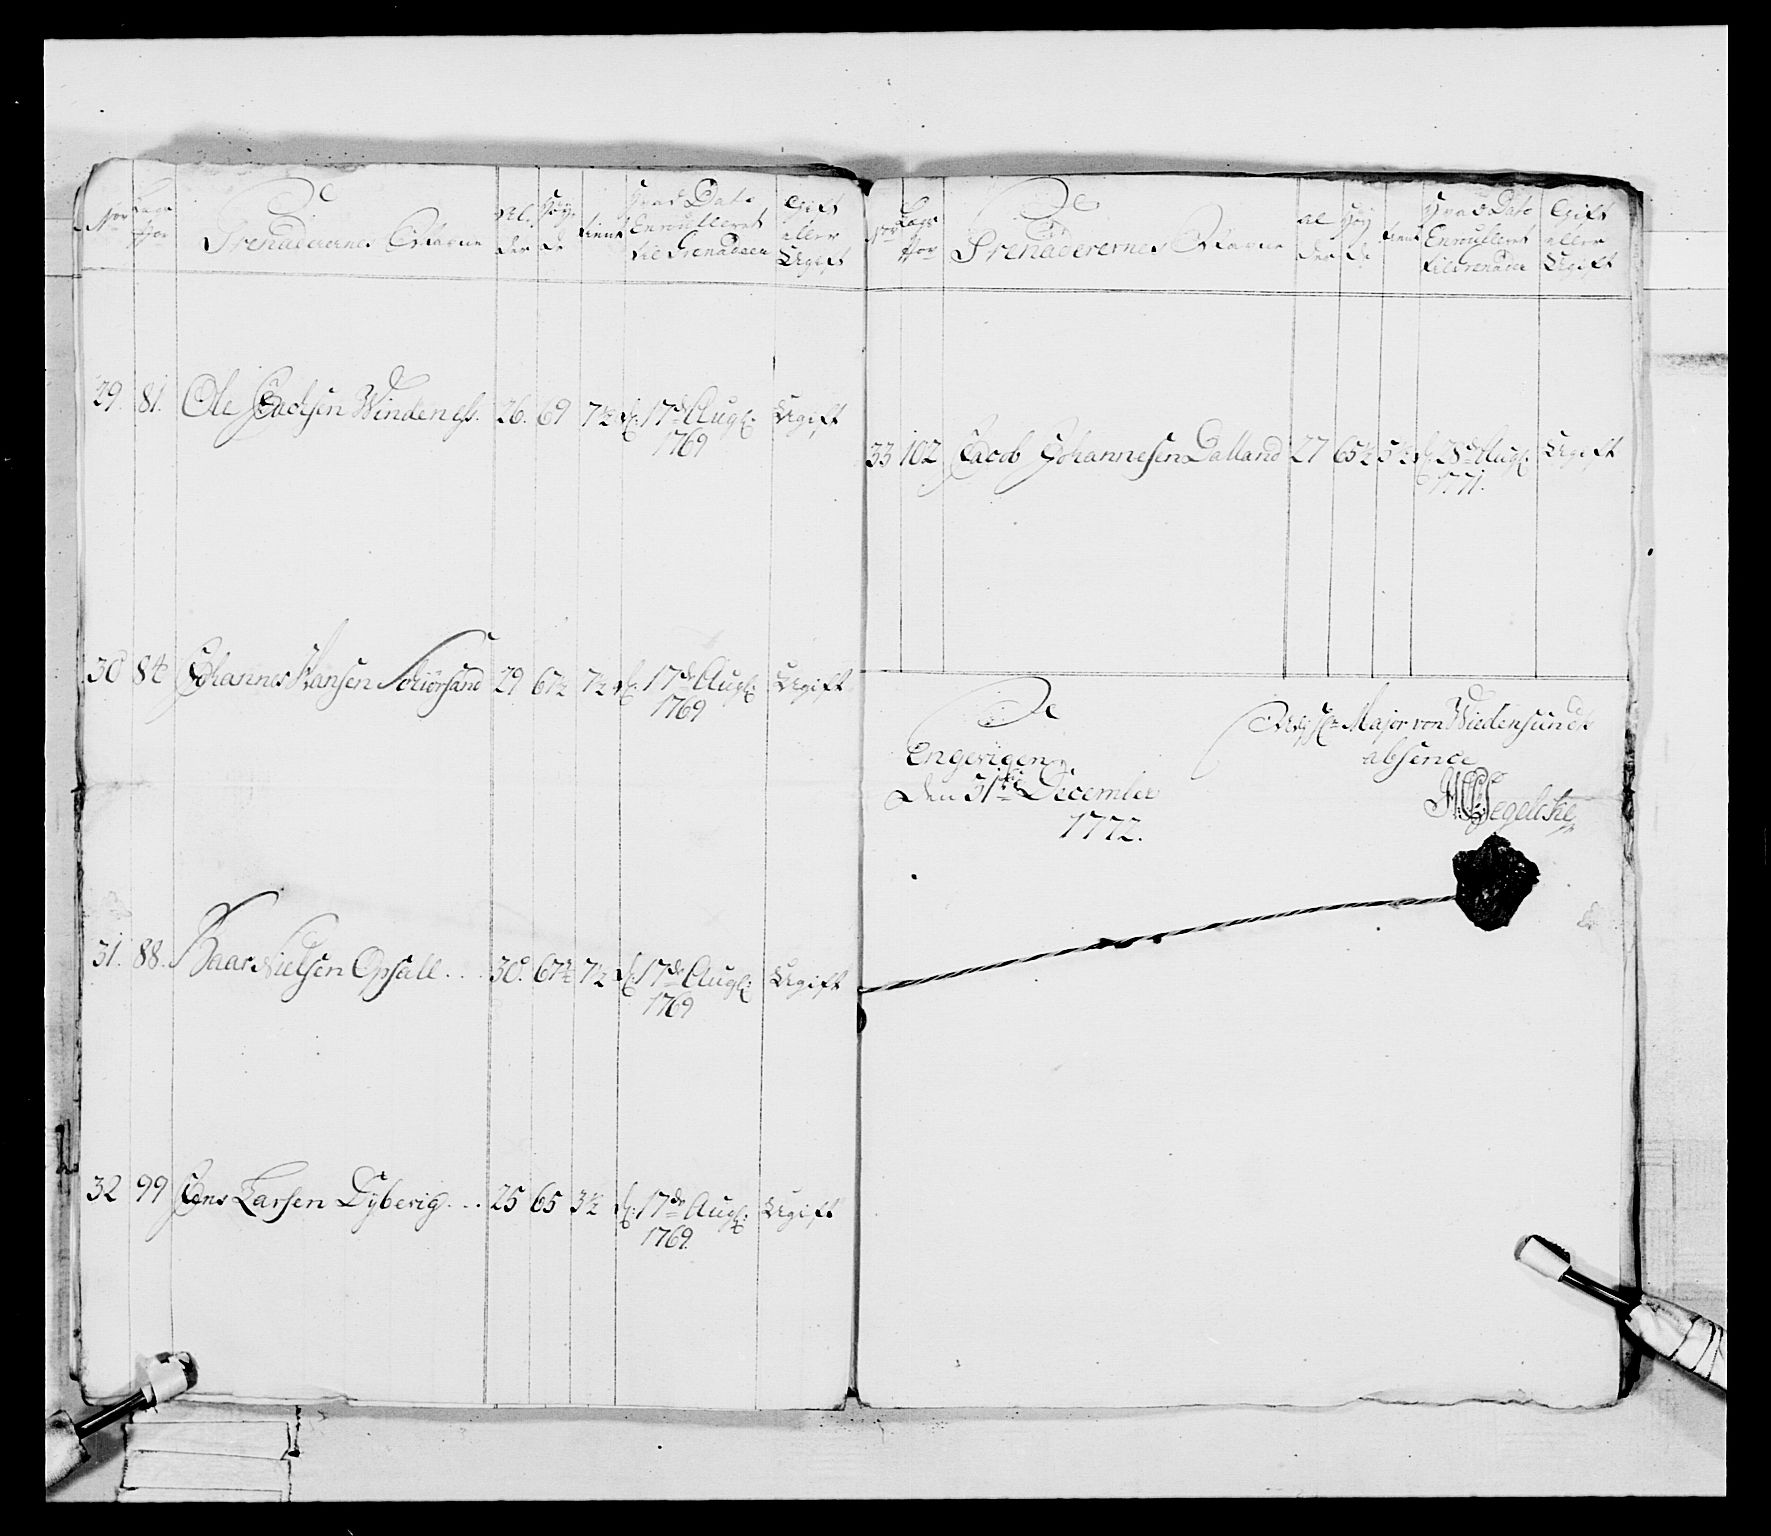 De
Nor
Lægs Nor
Grenaderernes Nafne
Al der
Høy de
tient
Hvad Dato Enroulleret til Grenadeer
Gift eller Ugift
29. 81. Ole Jacobsen Windenæss. 26. 69 7½ d: 17de Aug:
1769
Ugift
30 84 Johannes Hansen Schiørsand 29 67½ 7½ d: 17de Aug:
1769
Ugift
31. 88. Baar Nielsen Opsall . . . 30. 67½ 7½ d: 17de Aug:
1769
Ugift
32 99 Jens Larsen Dyberig . . . 25 65 3½ d: 17de Aug:
1769.
Ugift
De
Nor
Lægs Nor
Grenaderernes Nafne
al der
Høy de
tient
Hvad Dato Enroulleret til Grenadeer
Gift eller Ugift
33 102 Jacob Johannesen Dalland 27 65½ 5½ d: 28de Aug:
1771.
Ugift
De
Engevigen
den 31te December
1772.
Major von Wiedensundt
absence
Segelcke